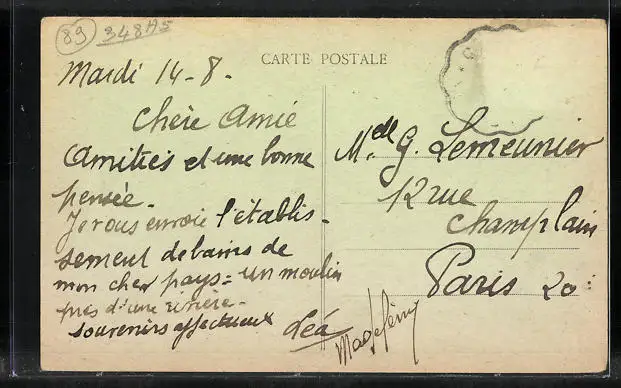 89
348 A5
CARTE POSTALE
Mardi 14-8-
Chère Amie
Amitiés et une bonne
pensée.
Je vous envoie l'établis-
sement de bains de
mon cher pays = un moulin
près d'une rivière-
souvenirs affectueux Léa
Mdlle G. Lemeunier
12 rue
Champlain
Paris 20e